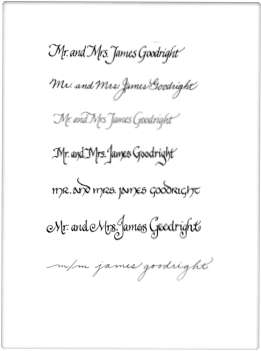 Mr. and Mrs. James Goodright
Mr. and Mrs. James Goodright
Mr. and Mrs. James Goodright
Mr. and Mrs. James Goodright
mr. and mrs. james goodright
Mr. and Mrs. James Goodright
m/m james goodright